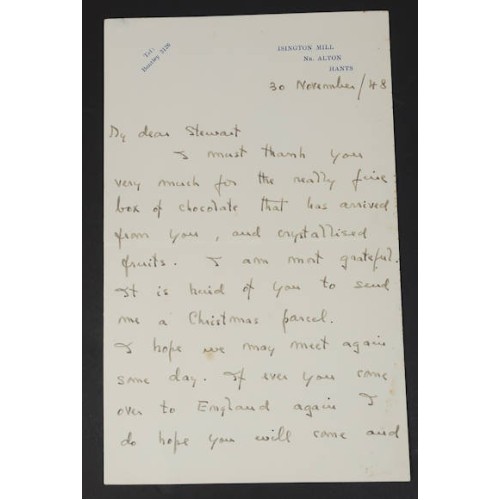 Tel:
Bentley 3126
ISINGTON MILL
Nr. ALTON
HANTS
30 November/48
My dear Stewart
I must thank you
very much for the really fine
box of chocolate that has arrived
from you, and crystallised
fruits. I am most grateful.
It is kind of you to send
me a Christmas parcel.
I hope we may meet again
some day. If ever you come
over to England again I
do hope you will come and